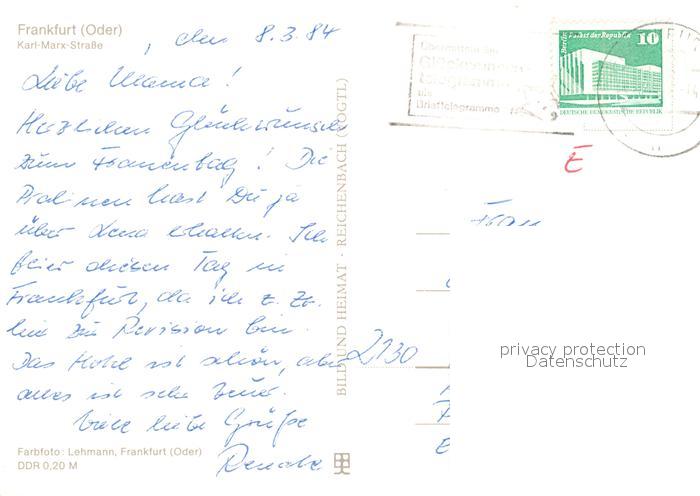 Frankfurt (Oder)
Karl-Marx-Straße
, den 8.3.84
Liebe Mama!
Herzlichen Glückwunsch
zum Frauentag! Die
Pralinen hast Du ja
über Lena erhalten. Ich
feier diesen Tag in
Frankfurt, da ich z. Zt.
hier zur Revision bin.
Das Hotel ist schön, aber
alles ist sehr teuer.
Viele liebe Grüße
Renate
Farbfoto: Lehmann, Frankfurt (Oder)
DDR 0,20 M
BILD UND HEIMAT · REICHENBACH (VOGTL)
Übermitteln Sie
Glückwunsch
telegramme
als
Brieftelegramme
Berlin, Palast der Republik
10
DEUTSCHE DEMOKRATISCHE REPUBLIK
E
Frau
2130
privacy protection
Datenschutz